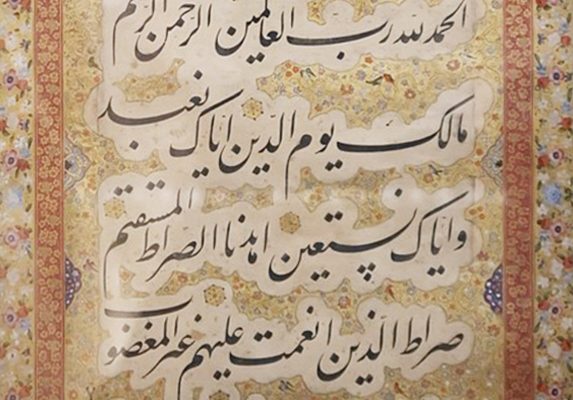 الحمد لله رب العالمين الرحمن الرحيم
مالك يوم الدين اياك نعبد
واياك نستعين اهدنا الصراط المستقيم
صراط الذين انعمت عليهم غير المغضوب